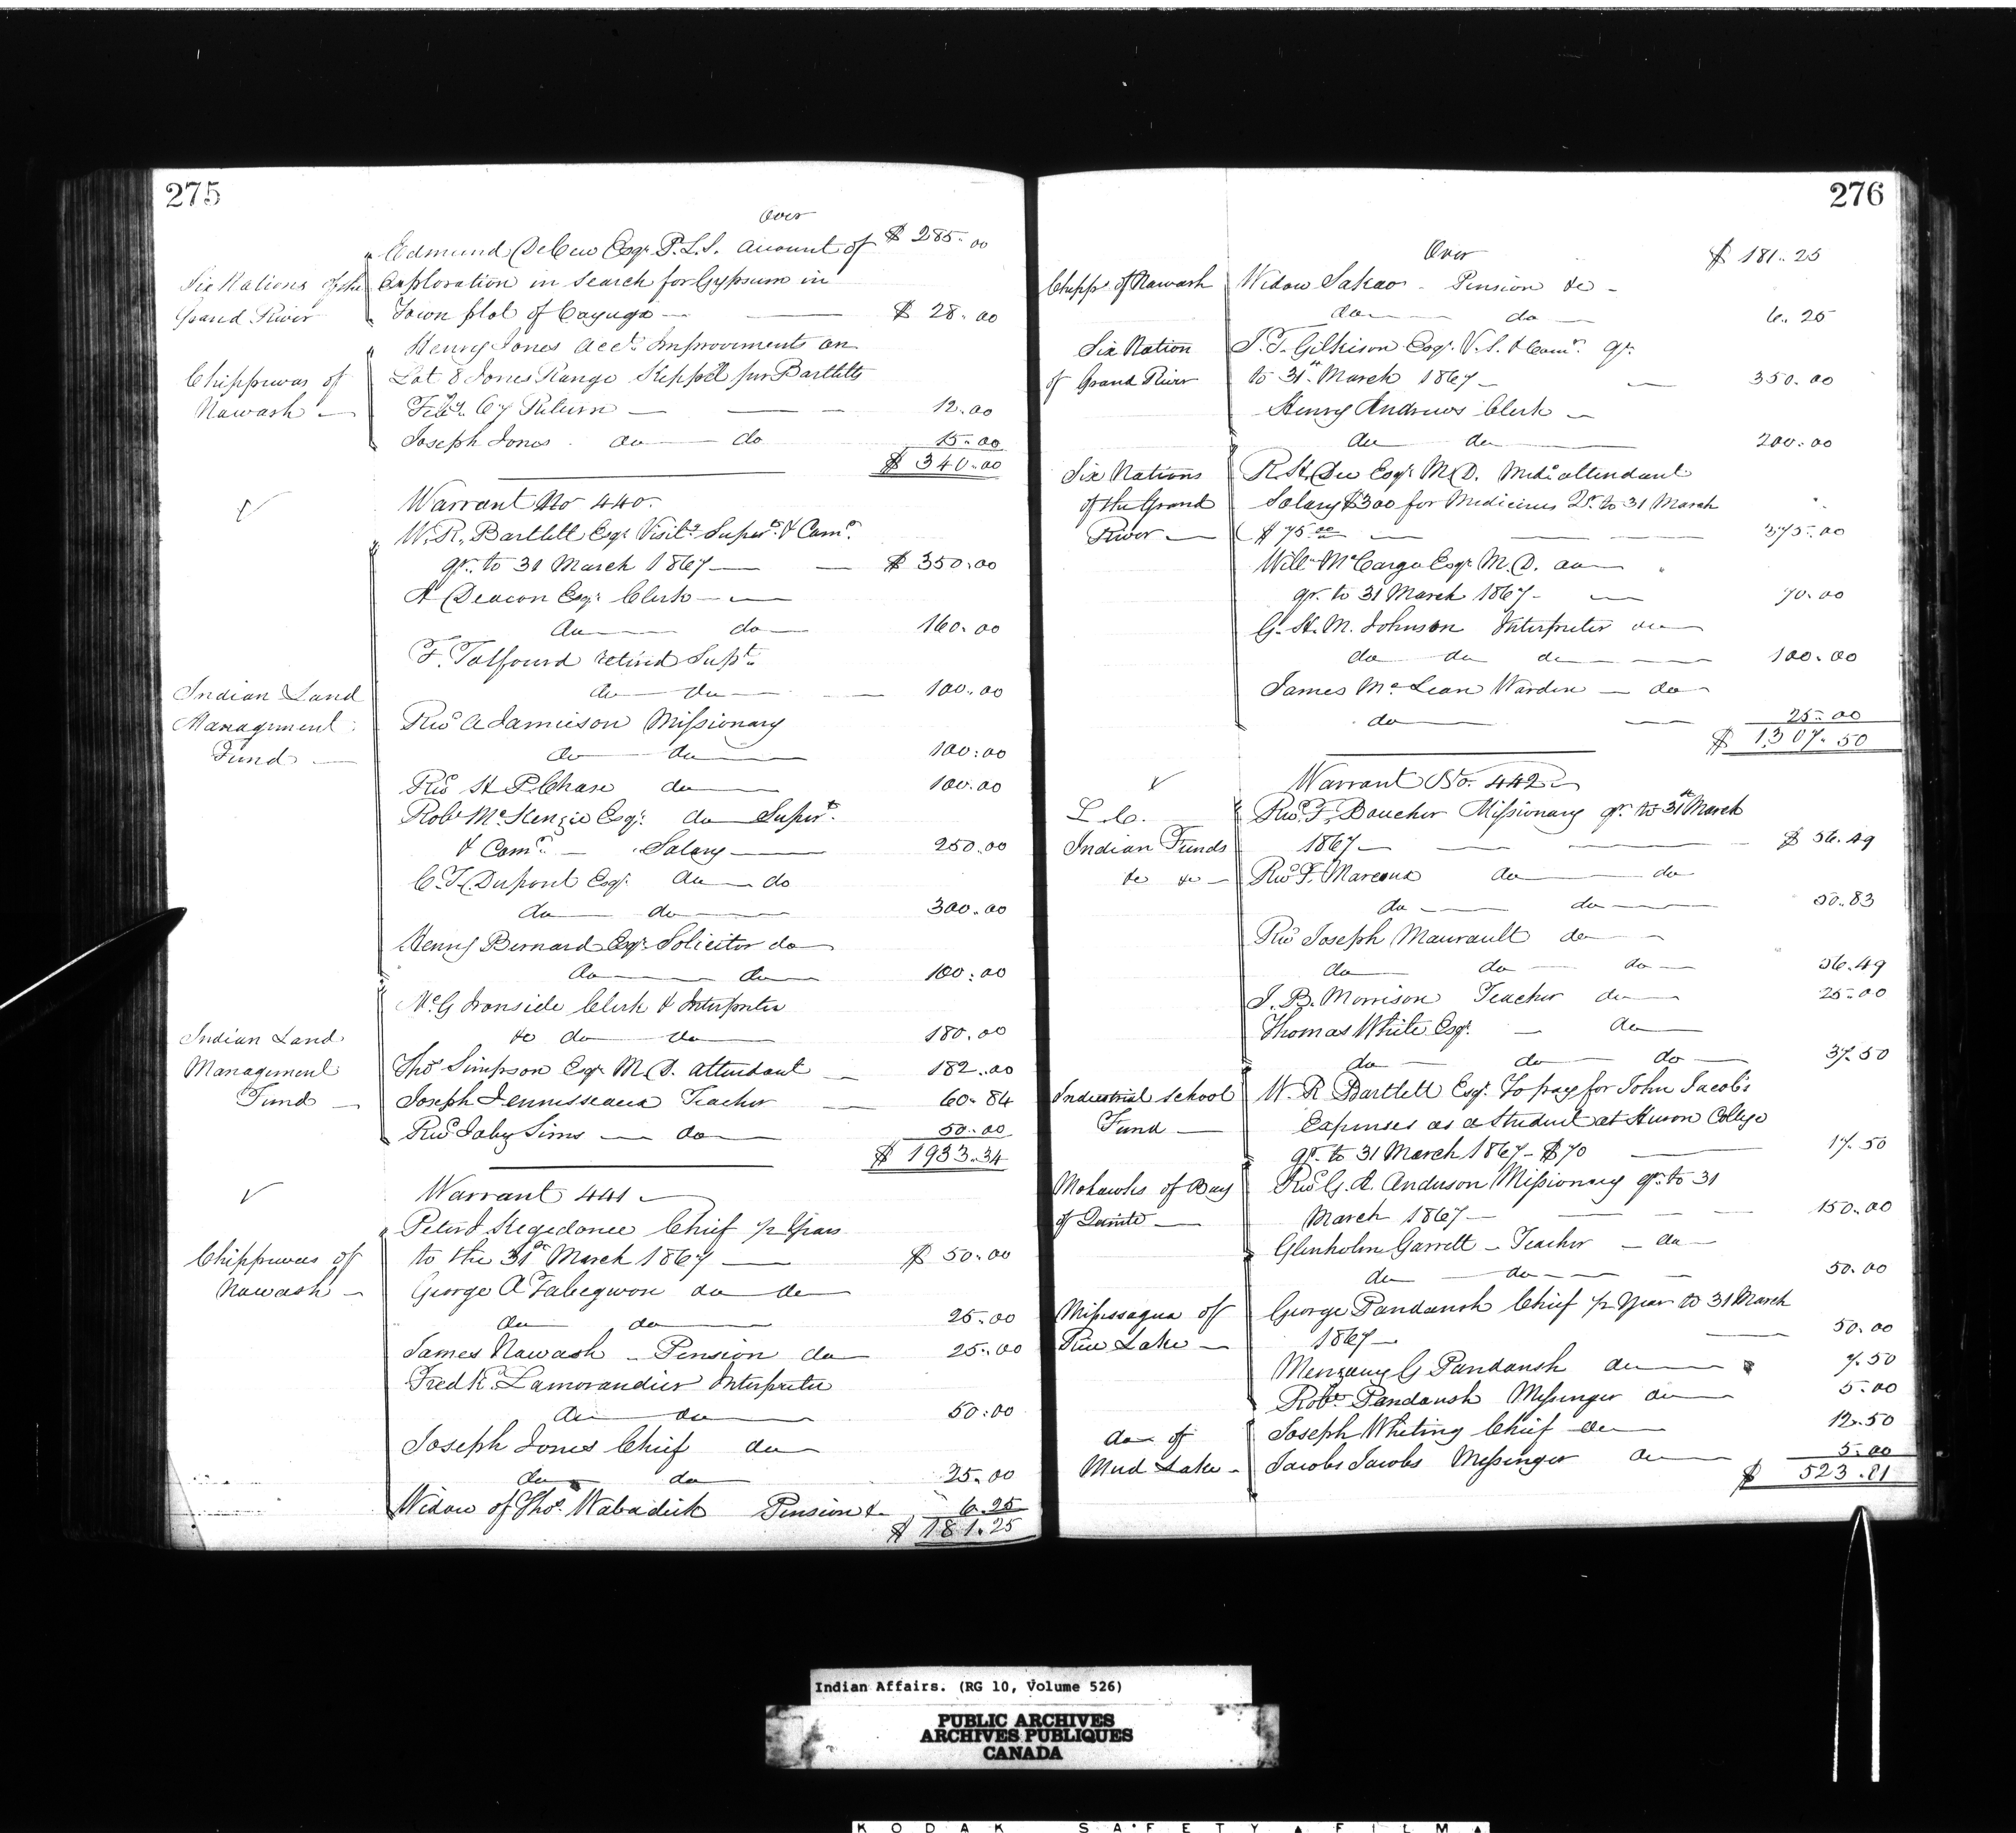 275
Over
Edmund DeCew Esqr P.L.S. account of $ 285.00
Six Nations of the Exploration in search for Gypsum in
Grand River Town plot of Cayuga — $ 28.00
Henry Jones acct Improvements on
Chippewas of Lot 8 Jones Range Keppel pr Bartletts
Nawash — Feby 67 Return — 12.00
Joseph Jones do do 15.00
$ 340.00
Warrant No 440.
W. R. Bartlett Esqr Visitg Super. & Comr
qr. to 31 March 1867 — $ 350.00
A Deacon Esqr Clerk —
do do 160.00
F. Talfourd retired Supt.
Indian Land do do 100.00
Management Revd A Jamieson Missionary
Fund — do do 100.00
Revd H P. Chase do 100.00
Robt McKenzie Esqr. do Supert.
& Comr. — Salary — 250.00
C. T. Dupont Esqr. do do
do do 300.00
Henry Bernard Esqr. Solicitor do
do do 100.00
McG Ironside Clerk & Interpreter
Indian Land &c do do 180.00
Management Thos Simpson Esqr M.D. attendant — 182.00
Fund — Joseph Teacher — 60.84
Revd Jabez Sims — do 50.00
$ 1933.34
Warrant 441
Peter J Kegedonce Chief ½ Year
Chippewas of to the 31st March 1867 — $ 50.00
Nawash — George A Tabegwon do do
do do 25.00
James Nawash — Pension do 25.00
Fredk. Lamorandier Interpreter
do do 50.00
Joseph Jones Chief do
do do 25.00
Widow of Thos. Wabadick Pension &c 6.25
$ 181.25
276
Over $ 181.25
Chipps of Nawash Widow Sakao Pension &c —
do do 6.25
Six Nation J. T. Gilkison Esqr. V. S. & Comr. qr.
of Grand River to 31st March 1867 — 350.00
Henry Andrews Clerk —
do do 200.00
Six Nations R. H. Dee Esqr. M.D. Medl attendant
of the Grand Salary $300 for Medicines Qr. to 31 March
River — $ 75.00 — 375.00
Willm McCargo Esqr M.D. do
qr. to 31 March 1867 — 70.00
G. H. M. Johnson Interpreter do
do do do 100.00
James McLean Warden — do
do 25.00
$ 1,307.50
Warrant No. 442
L. C. Revd. F. Boucher Missionary qr. to 31st March
Indian Funds 1867 — $ 56.49
&c &c — Revd F. Marcoux do do
do do 50.83
Revd Joseph Maurault do
do do do 56.49
J. B. Morrison Teacher do 25.00
Thomas White Esqr. — do
do do do 37.50
Industrial School W. R Bartlett Esqr. To pay for John Jacobs
Fund — Expenses as a Student at Huron College
qr. to 31 March 1867 — $70 — 17.50
Mohawks of Bay Revd G. A. Anderson Missionary qr. to 31
of Quinté — March 1867 — 150.00
Glenholm Garrett — Teacher — do
do do 50.00
Missisagua of George Pandaush Chief ½ Year to 31 March
Rice Lake — 1867 — 50.00
G Pandaush do 7.50
Robt. Pandaush Messenger do 5.00
do of Joseph Whiting Chief do 12.50
Mud Lake — Jacobs Jacobs Messenger do 5.00
$ 523.81
Indian Affairs. (RG 10, Volume 526)
PUBLIC ARCHIVES
ARCHIVES PUBLIQUES
CANADA
KODAK SAFETY FILM